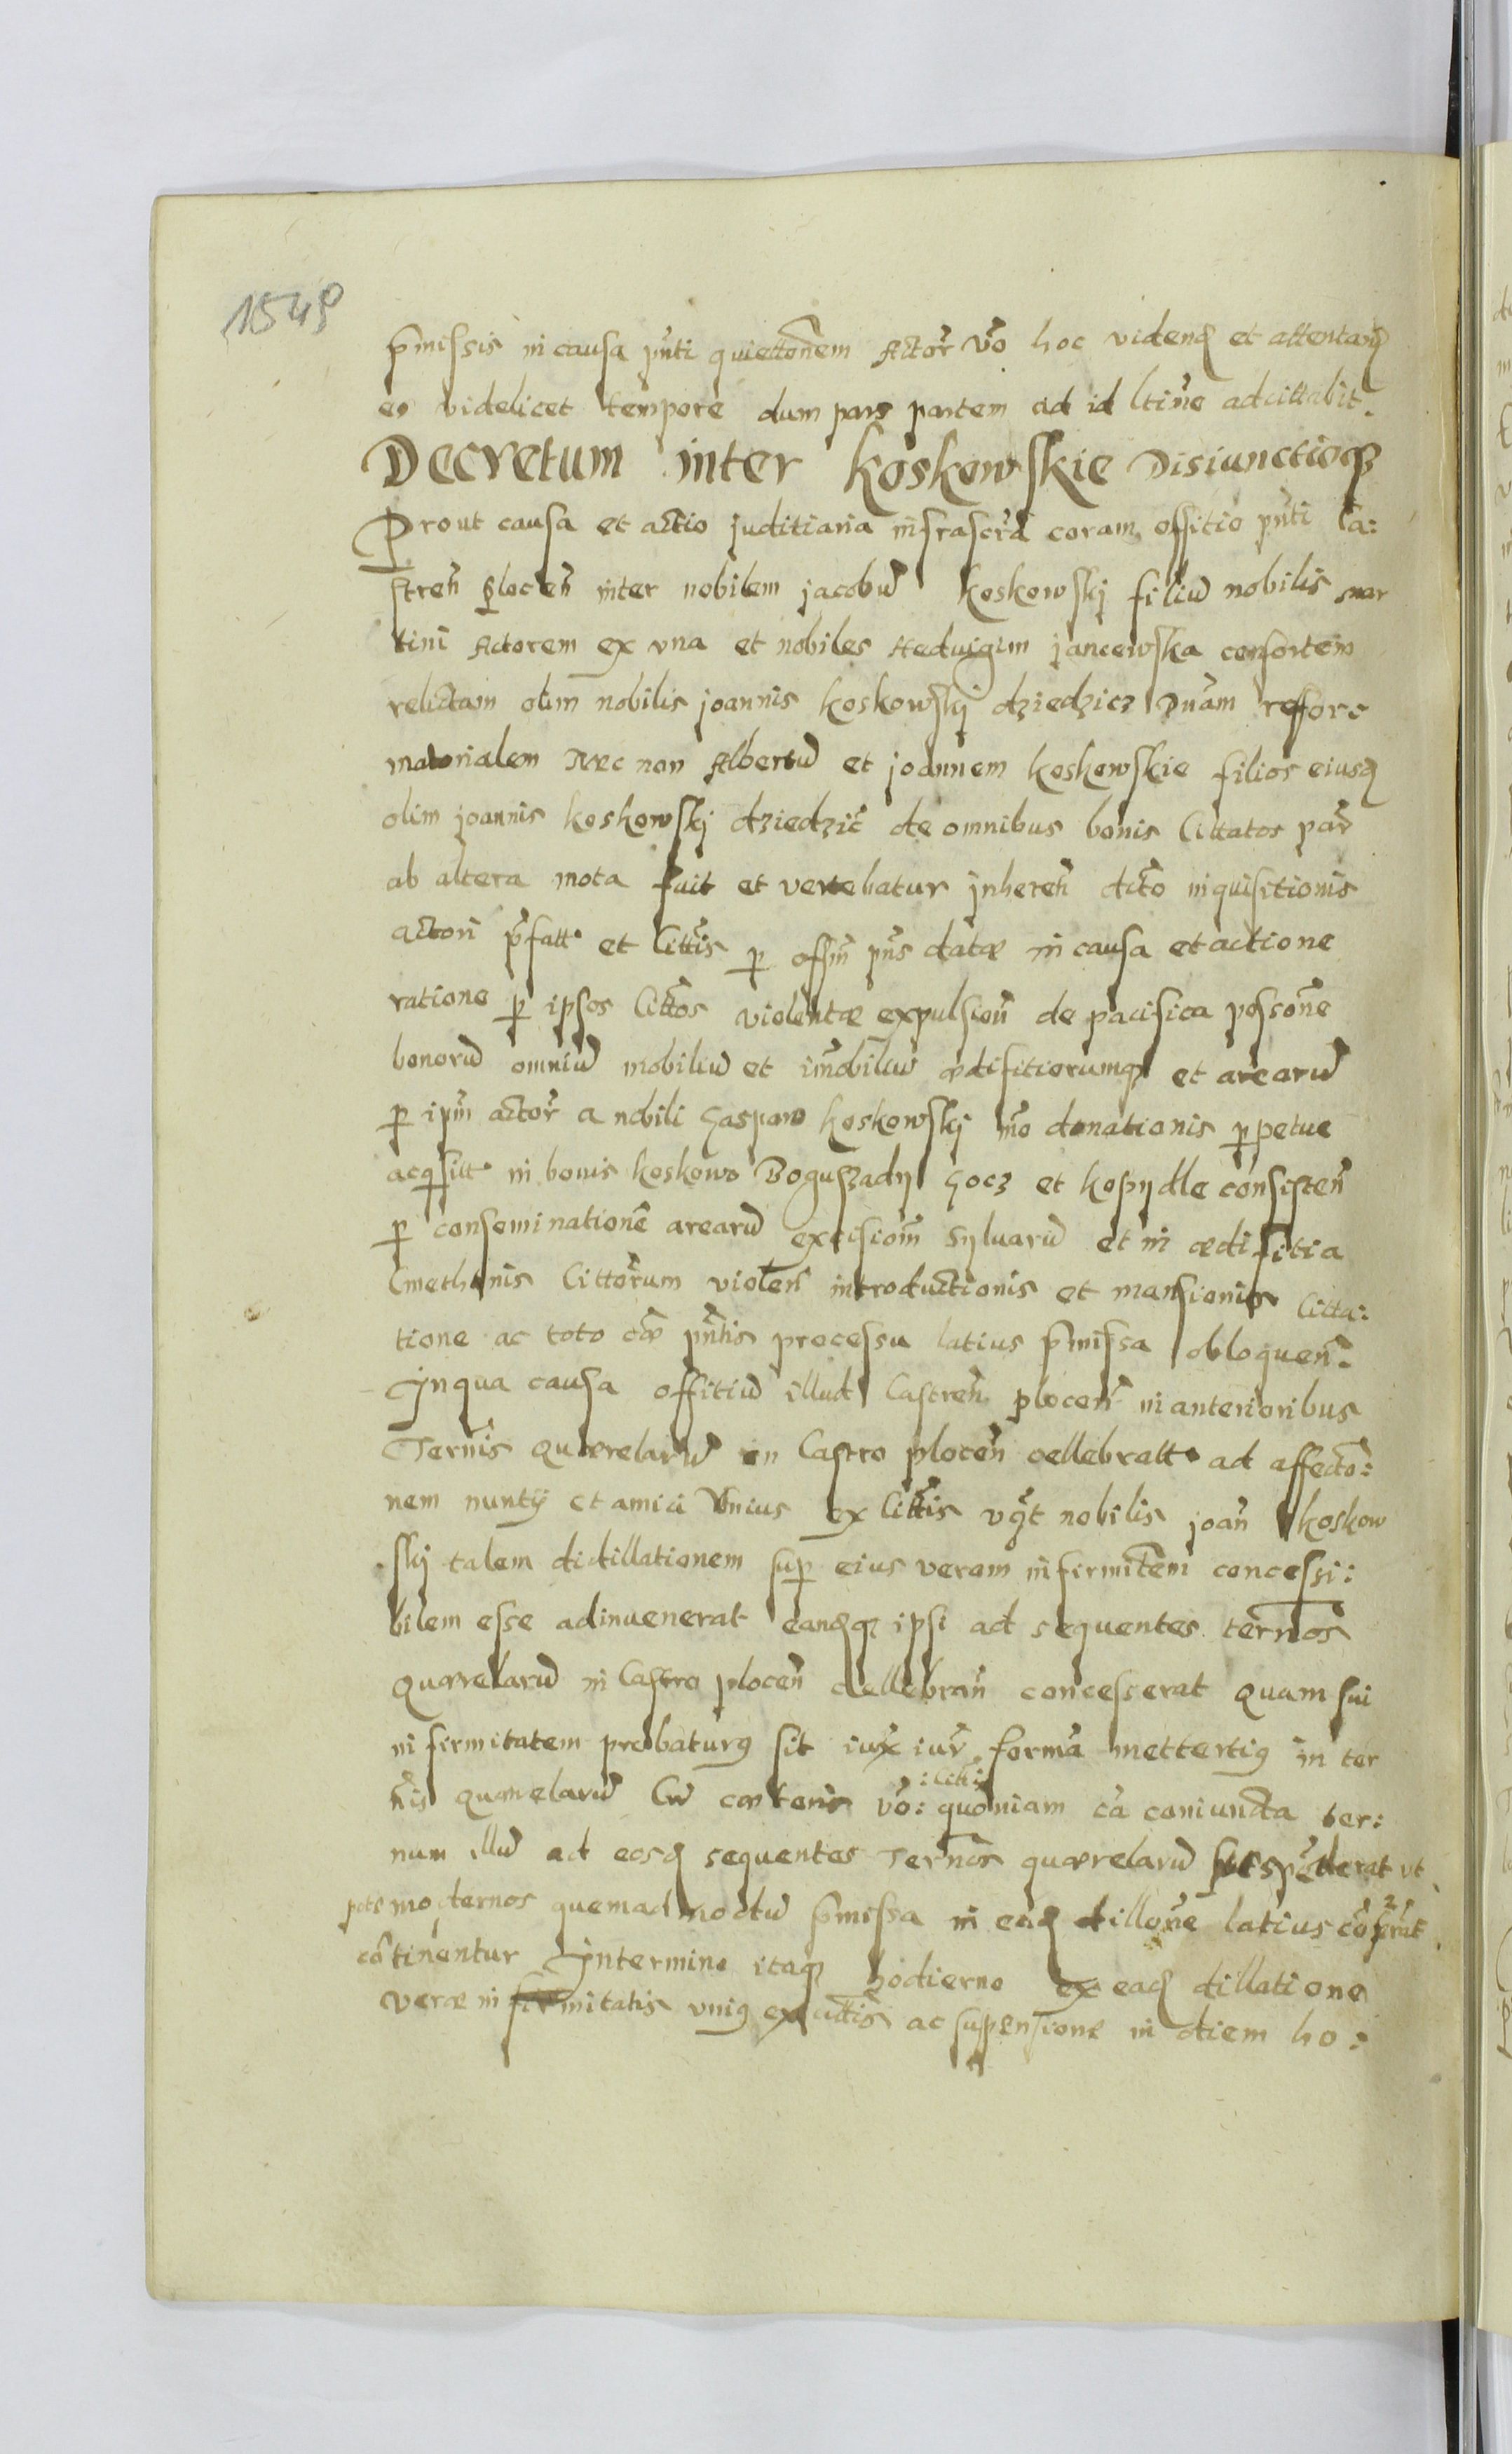 1549
p̃missis in causa pñti quiettõnem Actor̃ ṽo hoc videnđ et attentanđ
eo videlicet tempore dum pars partem ad id ltiñe adcittabit.
Decretum inter Koskowskie Disiunctioq3
Prout causa et actio juditiaria infrascr̃a coram offitio pñti Ca:
streñ ploceñ inter nobilem jacobũ Koskowskj filiũ nobilis mar
tini Actorem ex vna et nobiles Heduigim jancewska consortem
relictam olim nobilis joannis Koskowskj dziedzicz Dñam reffor
matorialem Nec non Albertũ et joannem Koskowskie filios eiusđ
olim joannis Koskowskj dziedzic̃ de omnibus bonis Cittatos par̃
ab altera mota fuit et vertebatur jnhereñ dc̃to inquisitionis
actori p̃fatt° et Citt̃is p offm̃ pñs datæ in causa et actione
ratione p ipsos Citt̃os violentæ expulsioñ de pacifica possõne
bonorũ omniũ mobiliũ et im̃obiliũ ædifitiorumq3 et arearũ
p ipm̃ actor̃ a nobili Gasparo Koskowskj m̃o donationis ppetue
acqsitt° in bonis Koskowo Boguszadij Gocz et Kopijdle consisteñ
p conseminationẽ arearũ excisiom̃ syluarũ et in ædifitia
Cmethonis Cittor̃um violeñ introductionis et mansionis Citta:
tione ac toto cæ̃ pñtis processu latius p̃missa obloqueñ.
Jnqua causa offitiũ illud Castreñ ploceñ in anterioribus
Term̃is quærelarũ in Castro ploceñ cellebratt° ad affectõ:
nem nuntij et amici Vnius ex Citt̃is vđt nobilis joañ Koskow
skj talem didillationem sup eius veram infirmitẽm concessi:
bilem esse adinuenerat eandq3 ipsi ad sequentes term̃os
quærelarũ in Castro ploceñ cellebrañ concesserat quam sui
infirmitatem probaturg sit iux̃ iur̃ form̃a mettertig in ter
m̃is quærelarũ Cũ cæteris ṽo: :Citt̃is: quoniam cã coniuncta ter:
num illũ ad eosđ sequentes Term̃os quærelarũ suspẽderat vt
pñs modernos quemadmodũ p̃missa in eađ dillõne latius
cõtinentur Jntermino itaq3 hodierno ex eađ dillatione
veræ infirmitatis vnig ex citt̃is ac suspensione in diem ho: